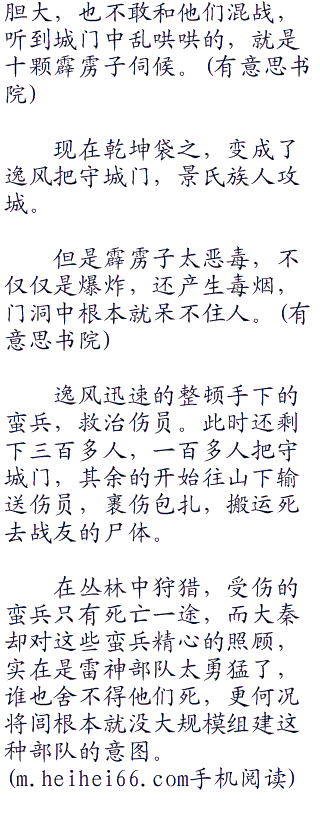 胆大，也不敢和他们混战，
听到城门中乱哄哄的，就是
十颗霹雳子伺候。(有意思书
院)
现在乾坤袋之，变成了
逸风把守城门，景氏族人攻
城。
但是霹雳子太恶毒，不
仅仅是爆炸，还产生毒烟，
门洞中根本就呆不住人。(有
意思书院)
逸风迅速的整顿手下的
蛮兵，救治伤员。此时还剩
下三百多人，一百多人把守
城门，其余的开始往山下输
送伤员，裹伤包扎，搬运死
去战友的尸体。
在丛林中狩猎，受伤的
蛮兵只有死亡一途，而大秦
却对这些蛮兵精心的照顾，
实在是雷神部队太勇猛了，
谁也舍不得他们死，更何况
将闾根本就没大规模组建这
种部队的意图。
(m.heihei66.com手机阅读)